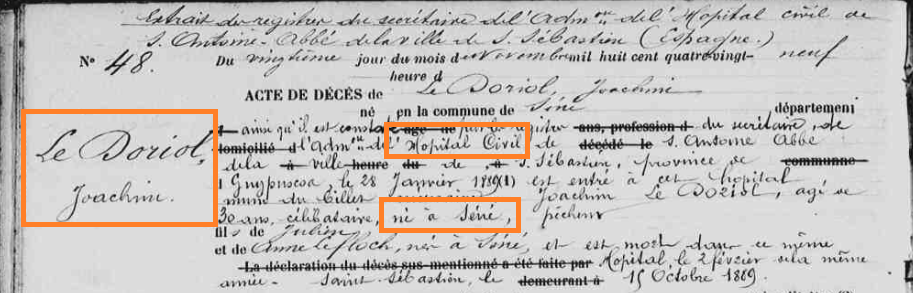 Extrait du registre du secrétaire de l'Adm.on de l'Hopital civil de
S. Antoine-Abbé de la ville de S. Sébastien (Espagne.)
N° 48.
Du vingtième jour du mois de Novembre mil huit cent quatre-vingt-neuf
heure d
ACTE DE DÉCÈS de Le Doriol, Joachim
né en la commune de Séné département
Le Doriol,
Joachim.
à ainsi qu'il est constaté âgé de par le registre ans, profession d du secrétaire, de
domicilié d l'Adm.on de l'Hopital Civil de décédé le S. Antoine Abbé
de la à ville heure du de à S. Sébastien, province de commune
Guypuscoa, le 28 Janvier 1889 (1) est entré à cet hopital
muni du billet Joachim Le Doriol, agé de
30 ans, célibataire, né à Séné, pêcheur
fils de Julien
et de Anne le floch, née à Séné, et est mort dans ce même
La déclaration du décès sus-mentionné a été faite par Hopital, le 2 février de la même
année. Saint Sébastien, le demeurant à 15 Octobre 1889.